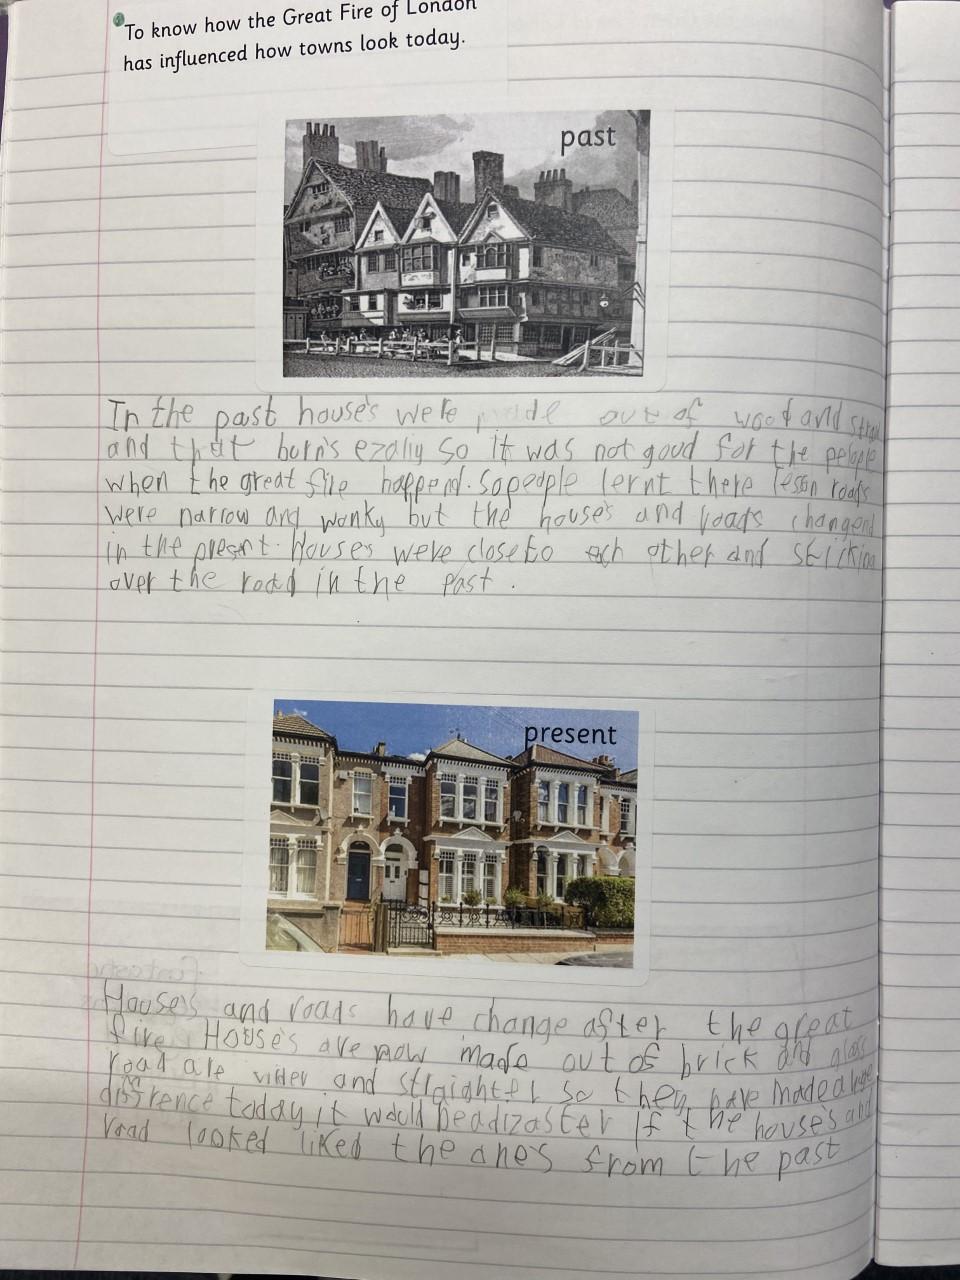 To know how the Great Fire of London
has influenced how towns look today.
past
In the past house's were made out of wood and straw
and that burn's ezaliy so it was not good for the pelople
when the great fire happend. So people lernt there lesson roads
were narrow and wonky but the house's and roads changend
in the present. Houses were close to ech other and sticking
over the road in the past.
present
House's and roads have change after the great
fire. House's are now made out of brick and glass
road are wider and straighter so they have made a huge
diffrence today it would be a dizaster if the house's and
road looked liked the one's from the past